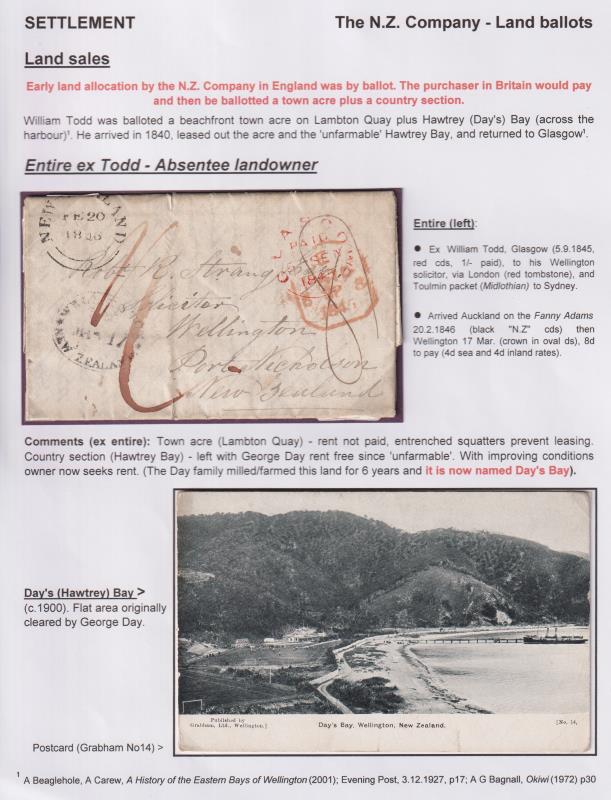 SETTLEMENT The N.Z. Company - Land ballots
Land sales
Early land allocation by the N.Z. Company in England was by ballot. The purchaser in Britain would pay
and then be ballotted a town acre plus a country section.
William Todd was balloted a beachfront town acre on Lambton Quay plus Hawtrey (Day's) Bay (across the
harbour)¹. He arrived in 1840, leased out the acre and the 'unfarmable' Hawtrey Bay, and returned to Glasgow¹.
Entire ex Todd - Absentee landowner
NEW ZEALAND
FE 20
1846
GLASGOW
PAID
SE
1845
8 SP 8
1845
WELLINGTON
NEW ZEALAND
R. Strang
Solicitor
Wellington
Port Nicholson
New Zealand
Entire (left):
● Ex William Todd, Glasgow (5.9.1845,
red cds, 1/- paid), to his Wellington
solicitor, via London (red tombstone), and
Toulmin packet (Midlothian) to Sydney.
● Arrived Auckland on the Fanny Adams
20.2.1846 (black "N.Z" cds) then
Wellington 17 Mar. (crown in oval ds), 8d
to pay (4d sea and 4d inland rates).
Comments (ex entire): Town acre (Lambton Quay) - rent not paid, entrenched squatters prevent leasing.
Country section (Hawtrey Bay) - left with George Day rent free since 'unfarmable'. With improving conditions
owner now seeks rent. (The Day family milled/farmed this land for 6 years and it is now named Day's Bay).
Day's (Hawtrey) Bay >
(c.1900). Flat area originally
cleared by George Day.
Published by
Grabham, Ltd., Wellington.]
Day's Bay, Wellington, New Zealand.
[No. 14,
Postcard (Grabham No14) >
¹ A Beaglehole, A Carew, A History of the Eastern Bays of Wellington (2001); Evening Post, 3.12.1927, p17; A G Bagnall, Okiwi (1972) p30